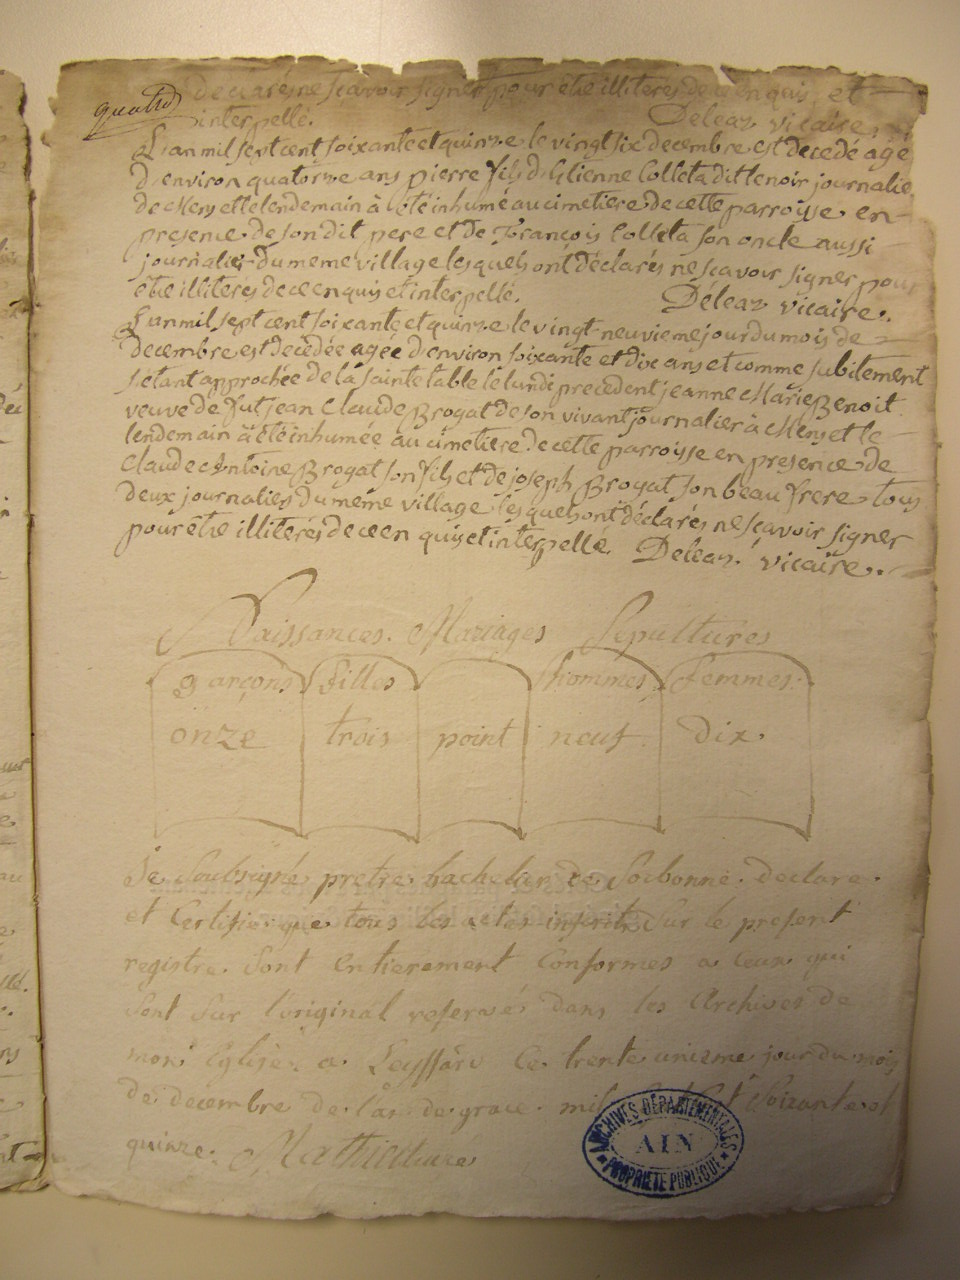 quatre
declarés ne scavoir signer pour etre illiterés de ce enquis et
interpellé. Deleaz vicaire.
L'an mil sept cent soixante et quinze le vingt six decembre est decedé agé
d'environ quatorze ans pierre fils d'Etienne Colleta dit lenoir journalie
de cheny et le lendemain à été inhumé au cimetiere de cette parroisse en
presence de son dit pere et de François Colleta son oncle aussi
journalier du meme village lesquels ont déclarés ne scavoir signer pour
être illiterés de ce enquis et interpellé. Déleaz vicaire.
L'an mil sept cent soixante et quinze le vingt neuvieme jour du mois de
decembre est decedée agée d'environ soixante et dix ans et comme subitement
s'etant approchée de la sainte table le lundi precedent jeanne Marie Benoit
veuve de fut jean Claude Brogat de son vivant journalier à et le
lendemain à été inhumée au cimetiere de cette parroisse en presence de
Claude Antoine Brogat son fils et de joseph Brogat son beau frere tous
deux journaliers du même village lesquels ont déclarés ne scavoir signer
pour être illiterés de ce en quis et interpellé. Deleaz. vicaire.
Naissances. Mariages Sepultures
garçons filles hommes femmes.
onze trois point neuf dix.
Je Soubsigné pretre bachelier de Sorbonne declare
et Certifie que tous les actes inscrits sur le present
registre sont entierement conformes a ceux qui
sont sur l'original reservé dans les Archives de
mon Eglise. a ce trente unieme jour du mois
de decembre de l'an de grace mil Soixante et
quinze.
ARCHIVES DÉPARTEMENTALES
AIN
PROPRIÉTÉ PUBLIQUE